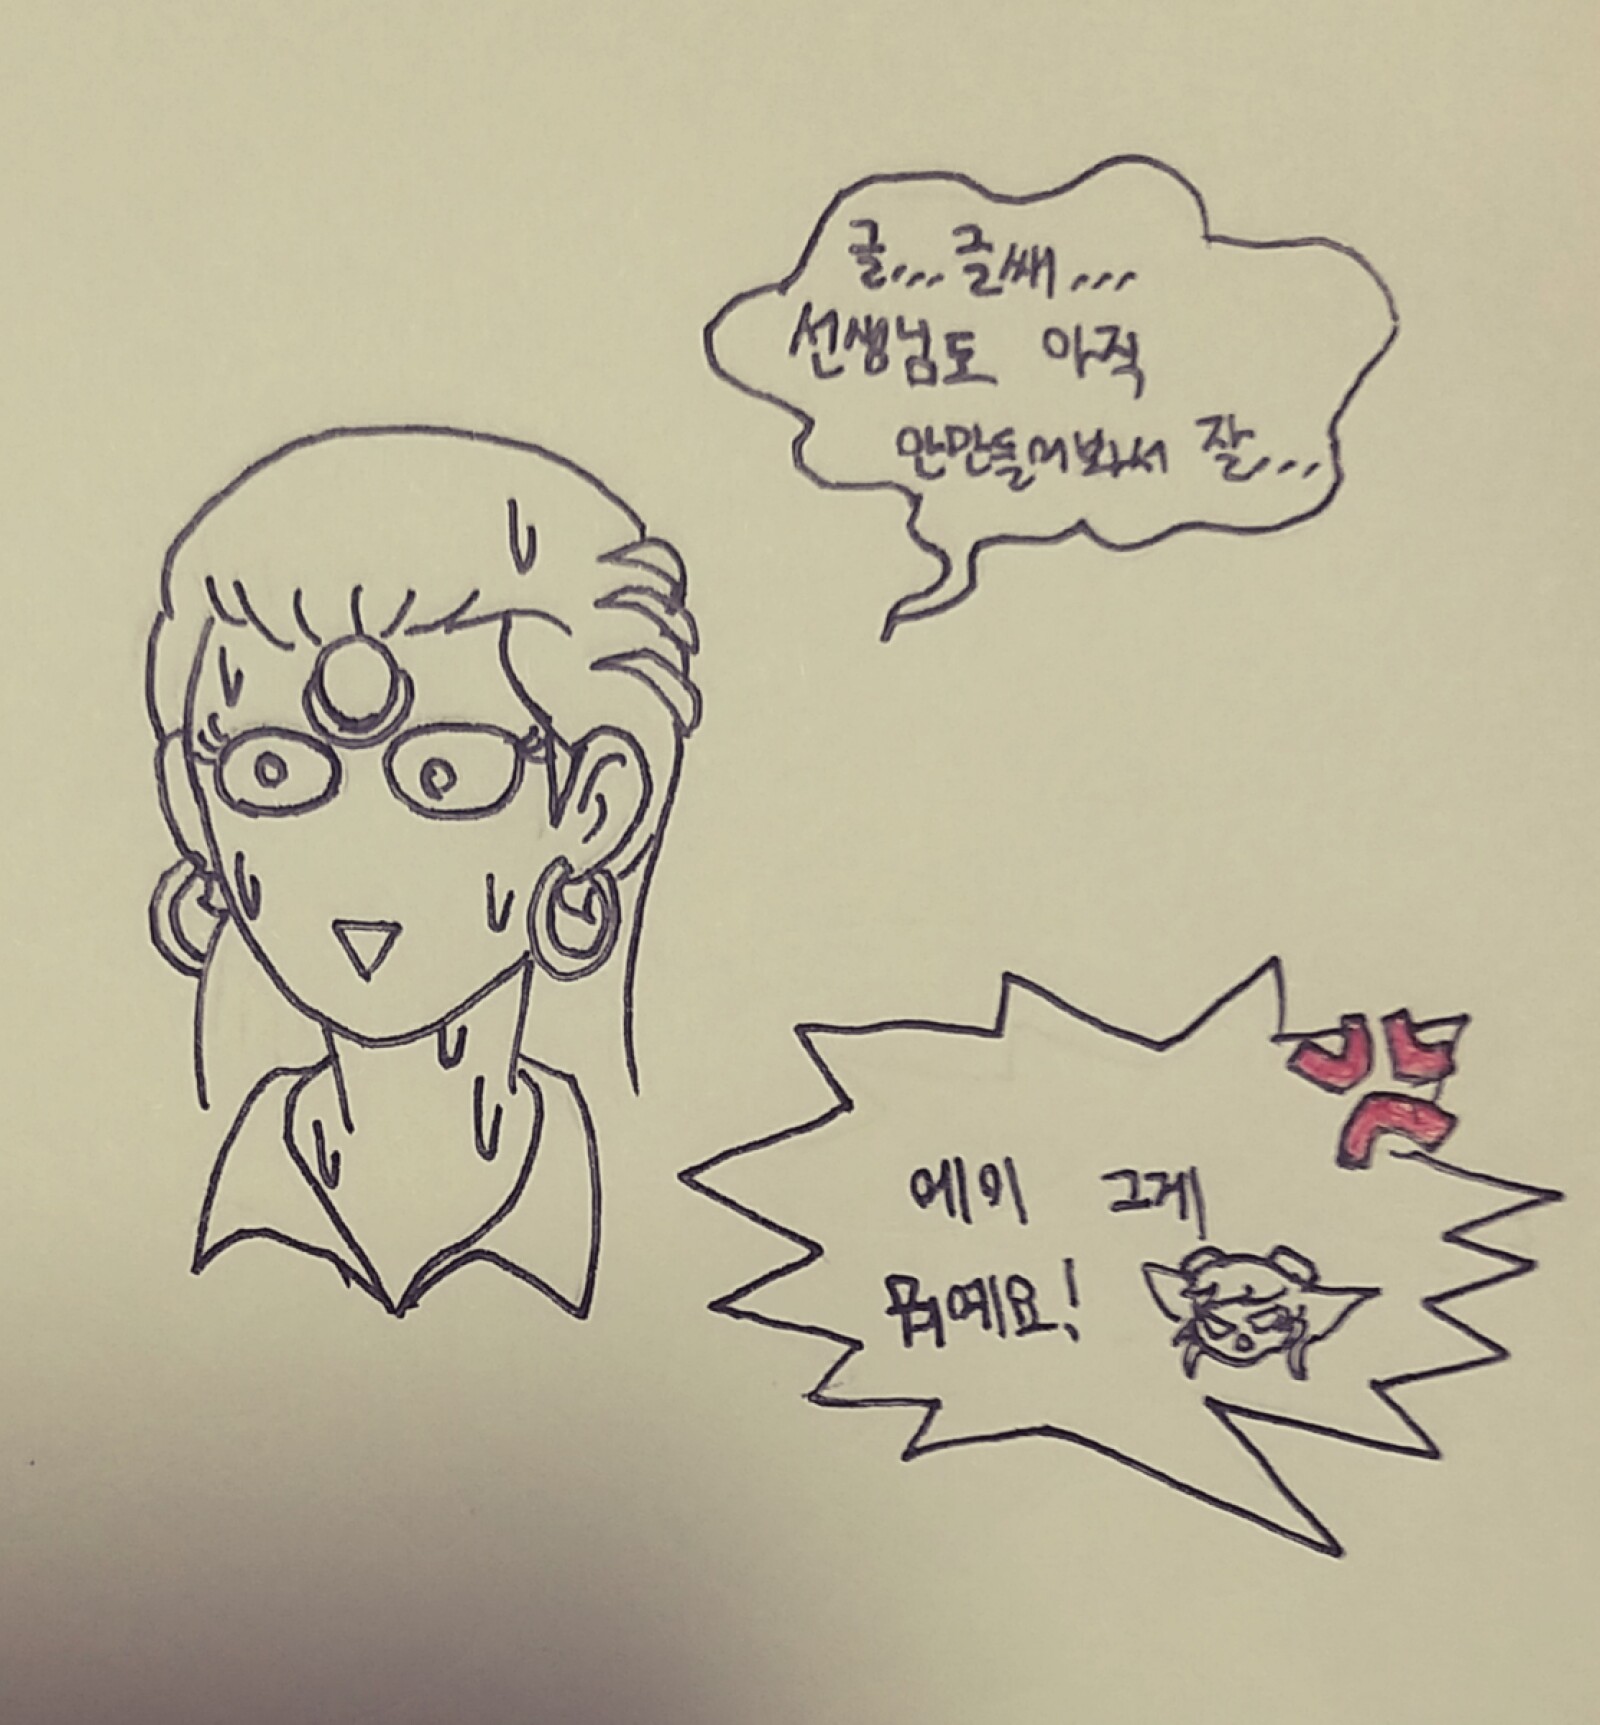 글... 글쎄...
선생님도 아직
안만들어봐서 잘...
에이 그게
뭐예요!